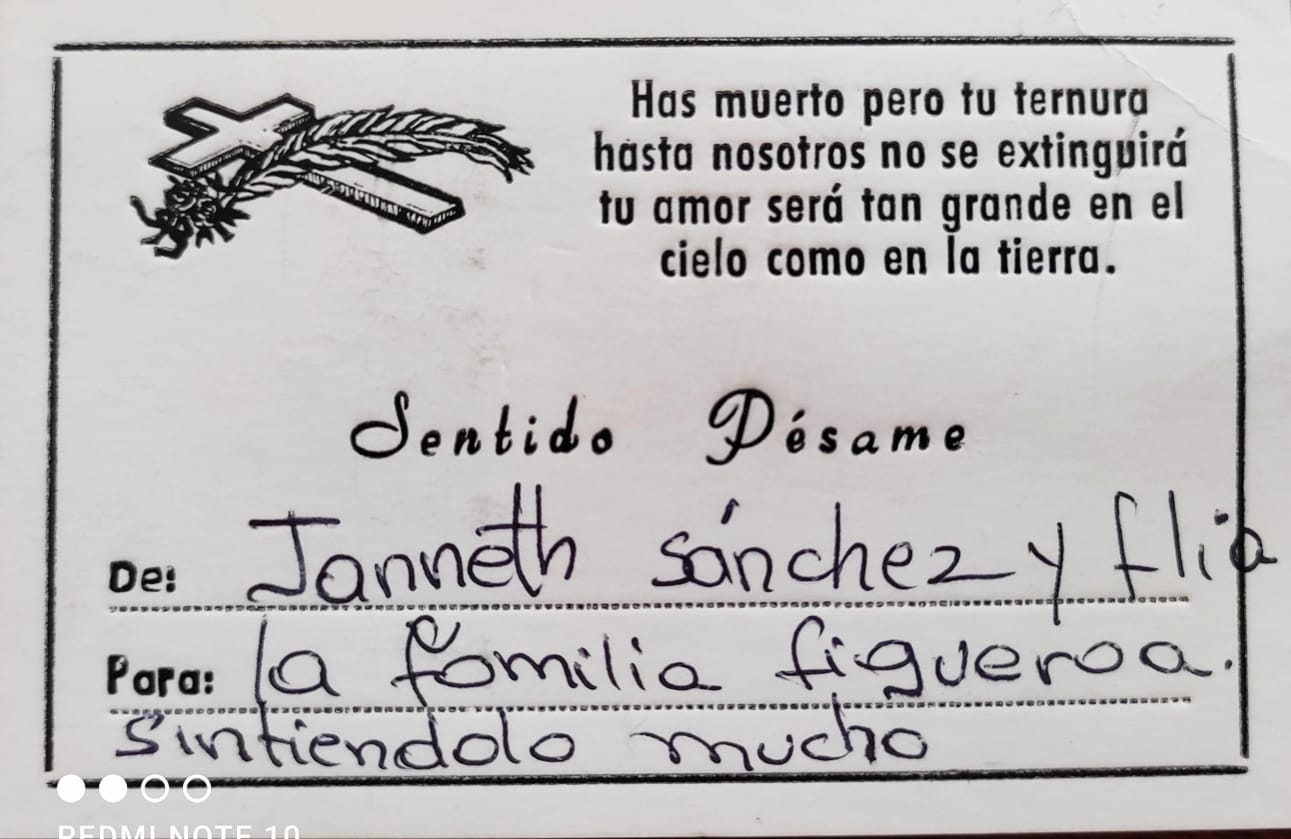 Has muerto pero tu ternura
hasta nosotros no se extinguirá
tu amor será tan grande en el
cielo como en la tierra.
Sentido Pésame
De: Janneth Sánchez y flia
Para: la familia figueroa.
Sintiendolo mucho
REDMI NOTE 10